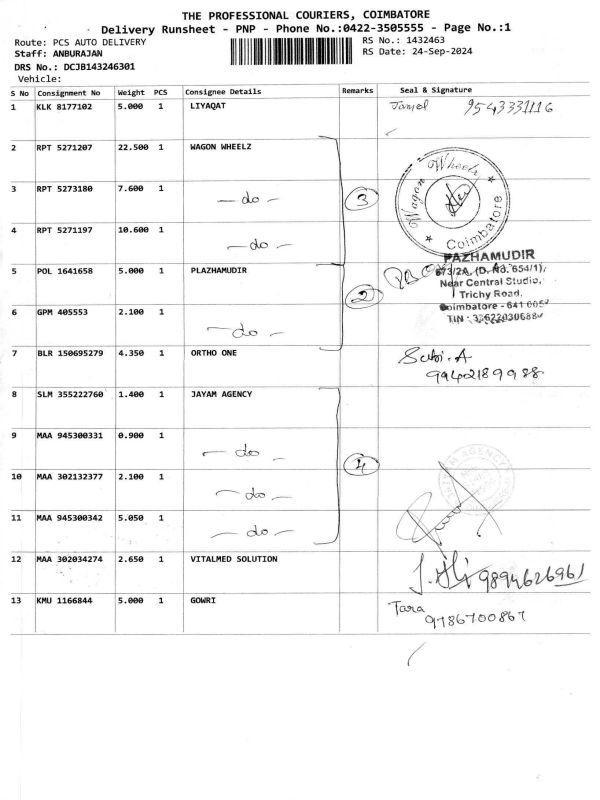 THE PROFESSIONAL COURIERS, COIMBATORE
Delivery Runsheet - PNP - Phone No.:0422-3505555 - Page No.:1
Route: PCS AUTO DELIVERY RS No.: 1432463
Staff: ANBURAJAN RS Date: 24-Sep-2024
DRS No.: DCJB143246301
Vehicle:
S No Consignment No Weight PCS Consignee Details Remarks Seal & Signature
1 KLK 8177102 5.000 1 LIYAQAT 9543331116
2 RPT 5271207 22.500 1 WAGON WHEELZ
3 RPT 5273180 7.600 1 - do - 3 Wagon Wheelz Coimbatore
4 RPT 5271197 10.600 1 - do -
5 POL 1641658 5.000 1 PLAZHAMUDIR 2 PAZHAMUDIR
673/2A, (D. No. 654/1),
Near Central Studio,
Trichy Road,
Coimbatore - 641 005
TIN : 33622030688
6 GPM 405553 2.100 1 - do -
7 BLR 150695279 4.350 1 ORTHO ONE Subi. A
9942189988
8 SLM 355222760 1.400 1 JAYAM AGENCY
9 MAA 945300331 0.900 1 - do - 4
10 MAA 302132377 2.100 1 - do -
11 MAA 945300342 5.050 1 - do -
12 MAA 302034274 2.650 1 VITALMED SOLUTION 9894626961
13 KMU 1166844 5.000 1 GOWRI Tara
9786700867